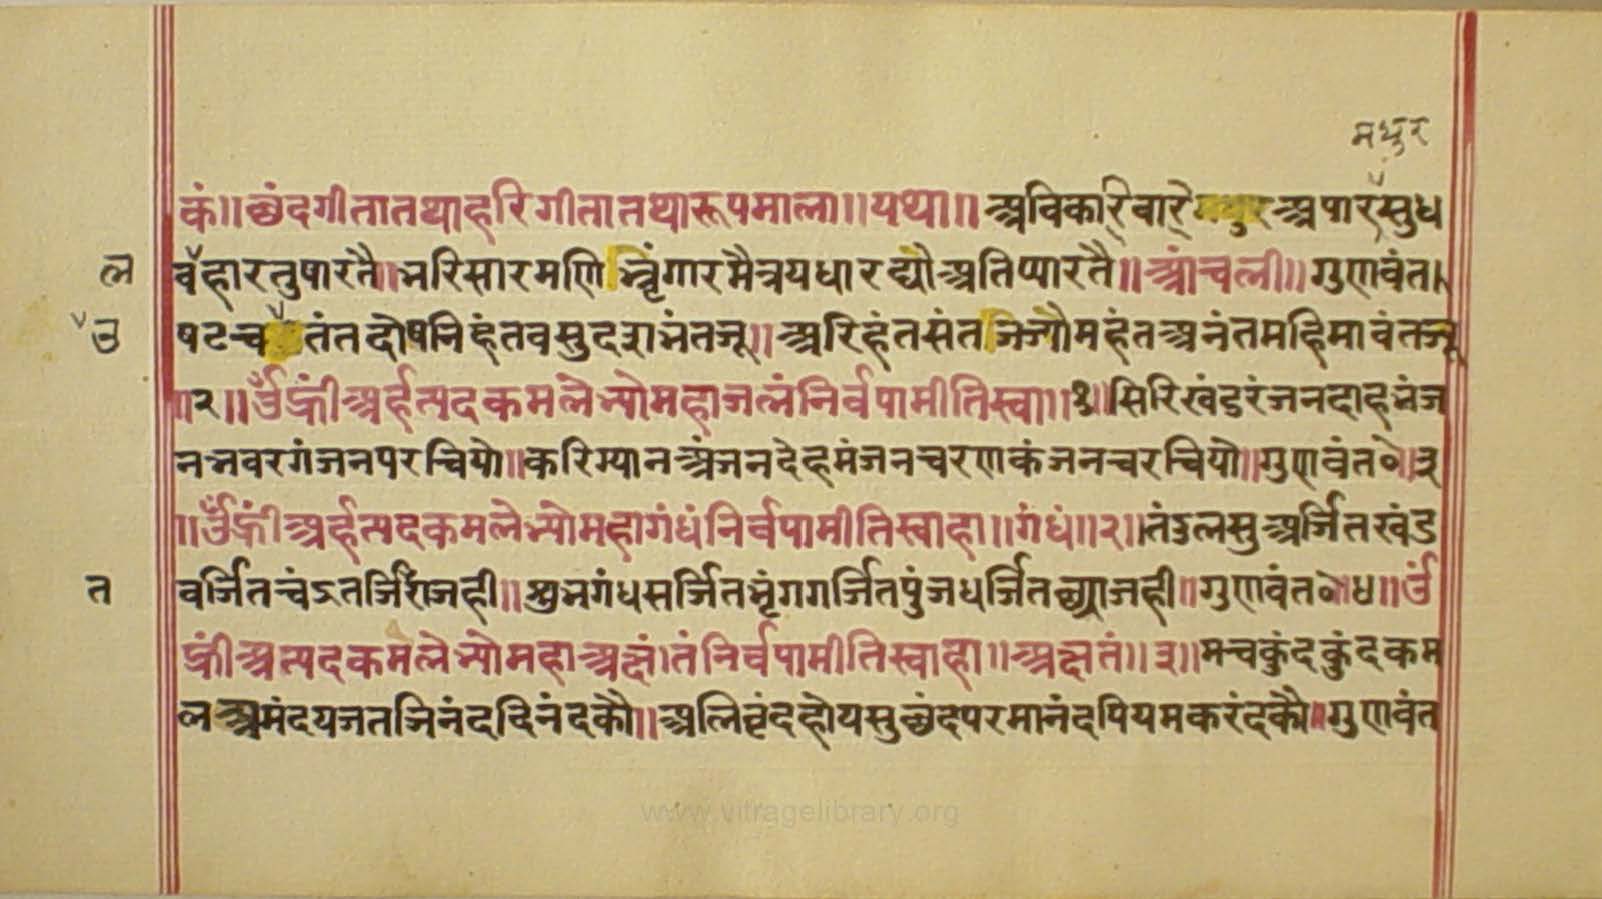 मथुर
कं॥ छंदगीतातथाहरिगीतातथारूपमाला॥यथा॥ अविकारिवारि अपारसुध
ल वहारतुषारतै॥भरिसारमणिभृंगारमैत्रयधारद्यौअतिप्यारतै॥आंचली॥गुणवंत।
उ षटच तंतदोषनिहंतवसुदशभंतजू॥अरिहंतसंतजिग्यौमहंतअनंतमहिमावंतजू
॥२॥ॐह्रींअर्हत्पदकमलेभ्योमहाजलंनिर्वपामीतिस्वा॥१॥सिरिखंडरंजनदाहभंज
नभवरगंजनपरचियो॥करिग्यानअंजनदेहमंजनचरणकंजनचरचियो॥गुणवंत०॥३
॥ॐह्रींअर्हत्पदकमलेभ्योमहागंधंनिर्वपामीतिस्वाहा॥गंधं॥२॥तंडुलसुअर्जितखंड
त वर्जितचंडतर्जिराजही॥शुभगंधसर्जितभृंगगर्जितपुंजधर्जितछाजही॥गुणवंत०॥४॥ॐ
ह्रींअत्पदकमलेभ्योमहाअक्षं।तंनिर्वपामीतिस्वाहा॥अक्षतं॥३॥मचकुंदकुंदकम
लअमंदयजतजिनंददिनंदकौ॥अलिवृंदहोयसुछंदपरमानंदपियमकरंदकौ॥गुणवंत
www.vitragelibrary.org